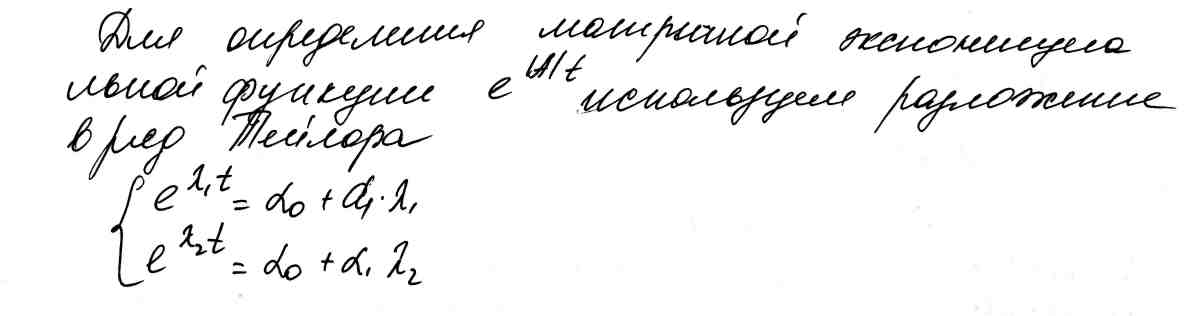 Для определения матричной экспоненциа
льной функции e^|A|t используем разложение
в ряд Тейлора
{ e^λ₁t = α₀ + α₁·λ₁
e^λ₂t = α₀ + α₁ λ₂